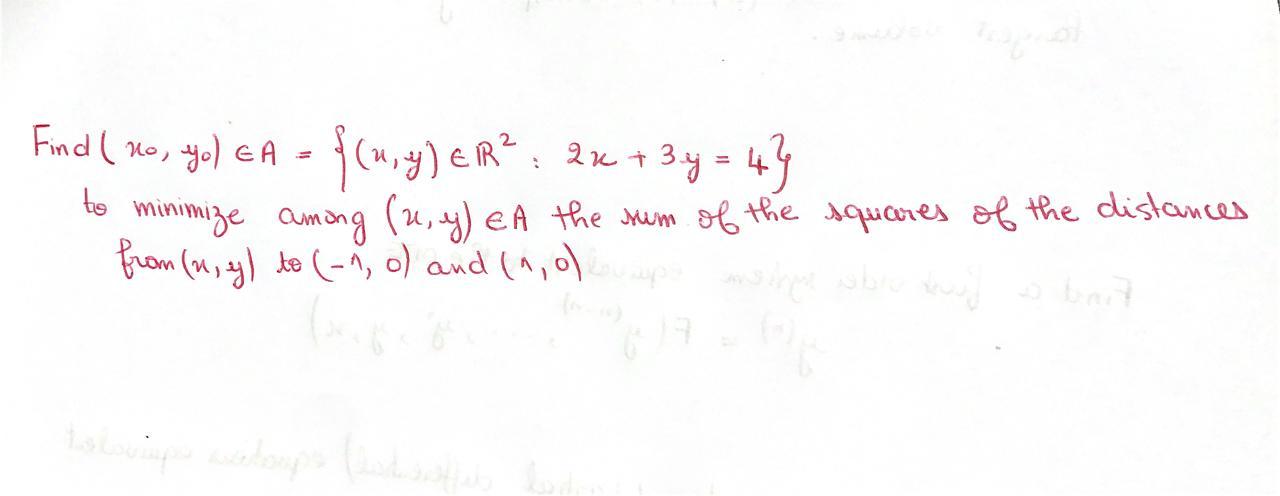 Find (x₀, y₀) ∈ A = {(x, y) ∈ ℝ² : 2x + 3y = 4}
to minimize among (x, y) ∈ A the sum of the squares of the distances
from (x, y) to (-1, 0) and (1, 0)